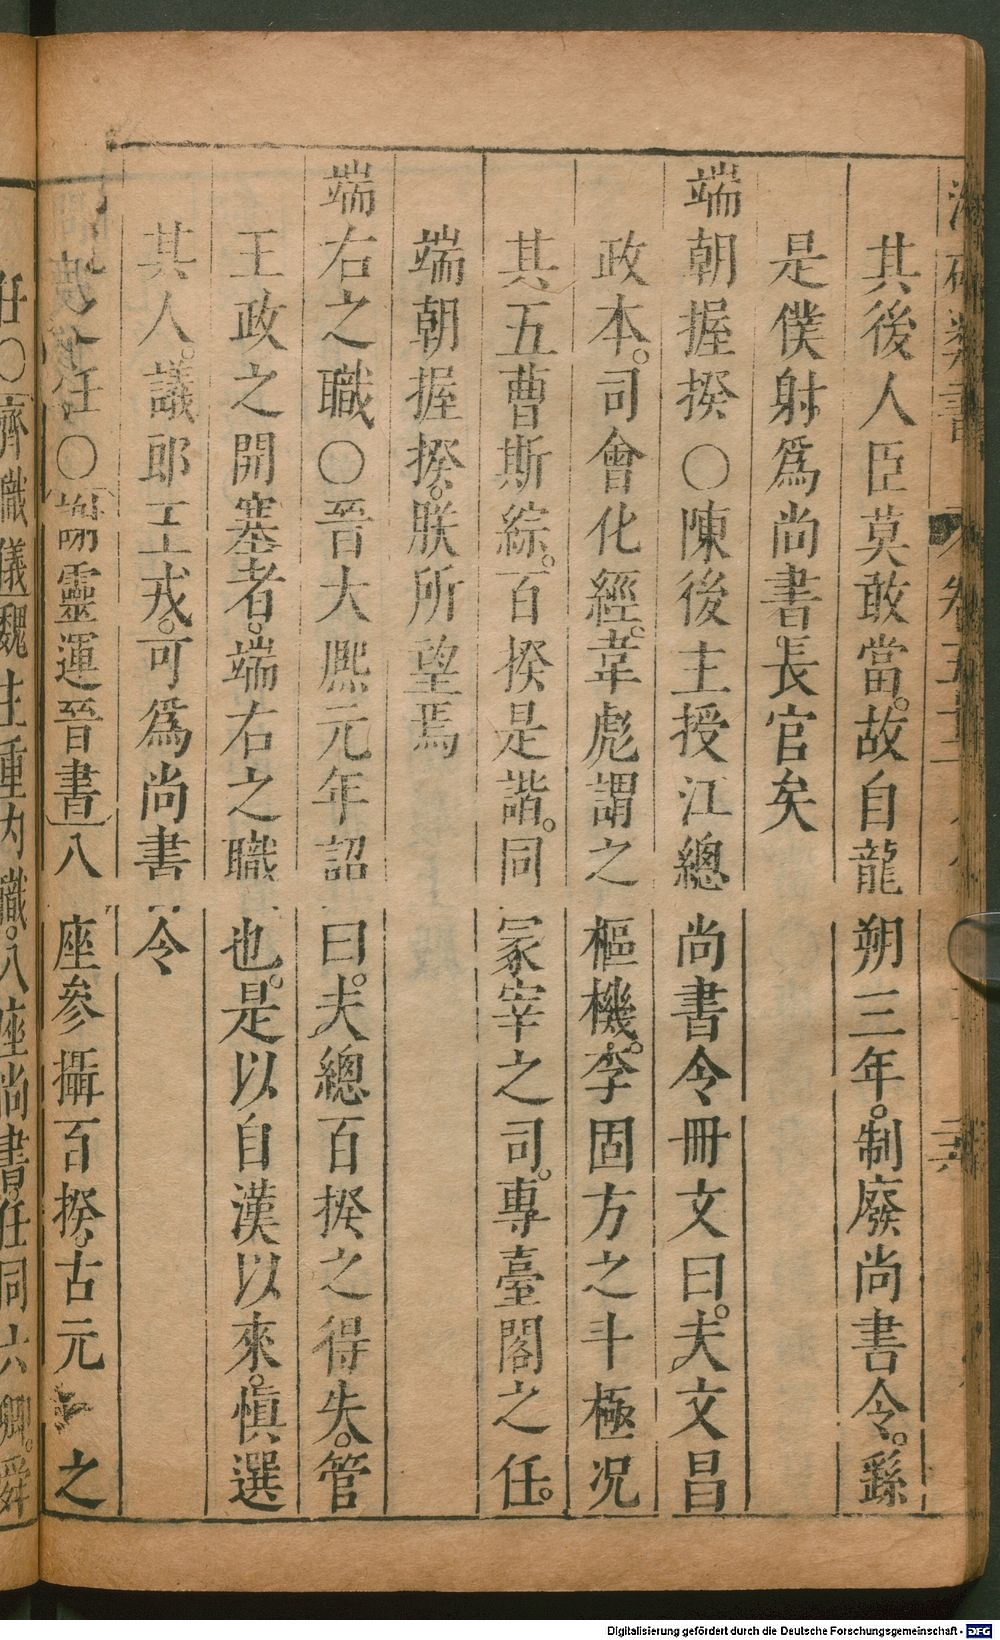 其後人臣莫敢當。故自龍朔三年。制廢尚書令。繇
是僕射爲尚書長官矣
端朝握揆○陳後主授江總尚書令冊文曰。夫文昌
政本。司會化經。韋彪謂之樞機。李固方之斗極況
其五曹斯綜。百揆是諧。同冢宰之司。專臺閣之任。
端朝握揆。朕所望焉
端右之職○晉大熈元年詔曰。夫總百揆之得失。管
王政之開塞者。端右之職也。是以自漢以來。慎選
其人。議郎王戎。可爲尚書令
任○謝靈運晉書八座參攝百揆。古元之
任○齊職儀魏主重內職。八座尚書。任同六卿。舜
Digitalisierung gefördert durch die Deutsche Forschungsgemeinschaft - DFG